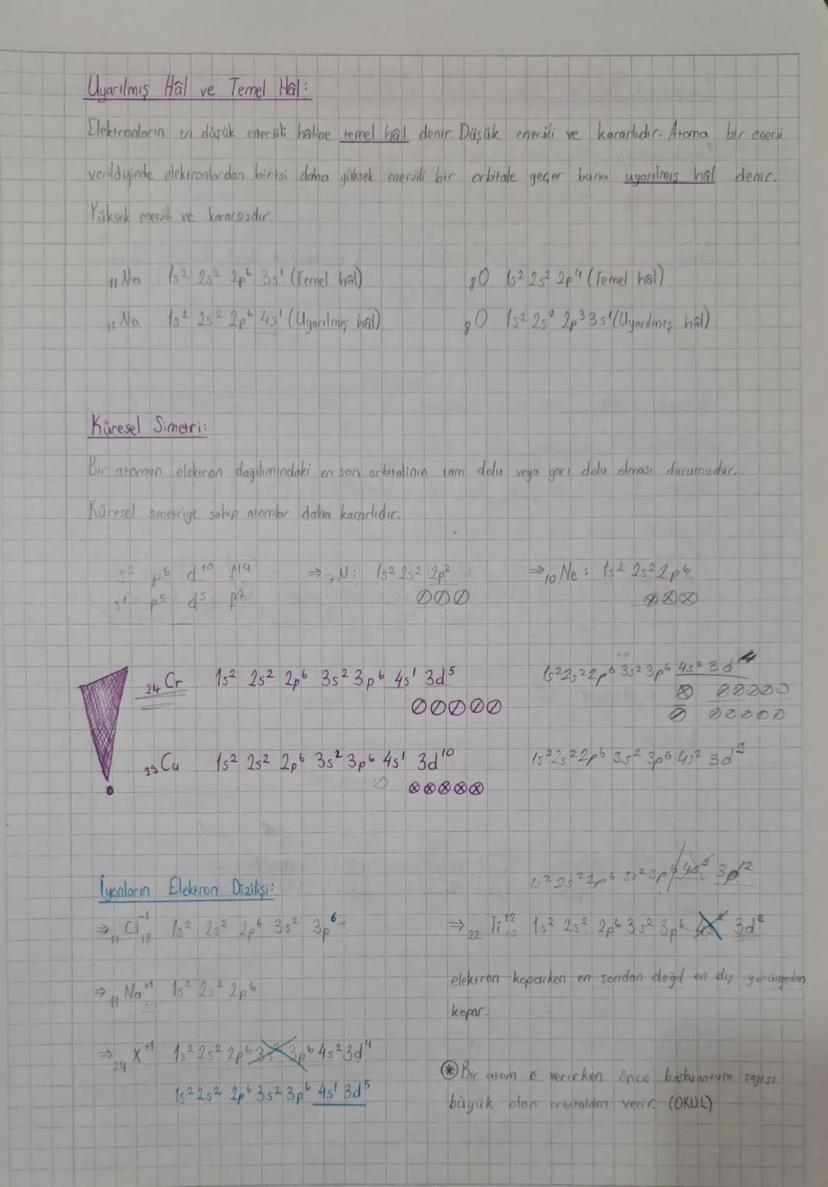 Uyarılmış Hâl ve Temel Hâl:
Elektronların en düşük enerjili haline temel hâl denir. Düşük enerjili ve kararlıdır. Atoma bir enerji
verildiğinde elektronlardan birisi daha yüksek enerjili bir orbitale geçer buna uyarılmış hâl denir.
Yüksek enerjili ve kararsızdır.
₁₁Na 1s² 2s² 2p⁶ 3s¹ (Temel hâl) ₈O 1s² 2s² 2p⁴ (Temel hâl)
₁₁Na 1s² 2s² 2p⁶ 4s¹ (Uyarılmış hâl) ₈O 1s² 2s² 2p³ 3s¹ (Uyarılmış hâl)
Küresel Simetri:
Bir atomun elektron dağılımındaki en son orbitalinin tam dolu veya yarı dolu olması durumudur.
Küresel simetriye sahip atomlar daha kararlıdır.
s² p⁶ d¹⁰ f¹⁴ ⇒ ₇N: 1s² 2s² ⇒ ₁₀Ne: 1s² 2s² 2p⁶
s¹ d⁵ f⁷
₂₄Cr 1s² 2s² 2p⁶ 3s² 3p⁶ 4s¹ 3d⁵ 1s² 2s² 2p⁶ 3s² 3p⁶ 4s² 3d⁴
₂₉Cu 1s² 2s² 2p⁶ 3s² 3p⁶ 4s¹ 3d¹⁰ 1s² 2s² 2p⁶ 3s² 3p⁶ 4s² 3d⁹
İyonların Elektron Dizilişi: 1s² 2s² 2p⁶ 3s² 3p⁶ 4s²
⇒ ₁₇Cl⁻¹ 1s² 2s² 2p⁶ 3s² 3p⁶ ⇒ ₂₂Ti⁺² 1s² 2s² 2p⁶ 3s² 3p⁶ 4s² 3d²
⇒ ₁₁Na⁺¹ 1s² 2s² 2p⁶ elektron koparken en sondan değil en dış yörüngeden
kopar.
⇒ ₂₄X⁺¹ 1s² 2s² 2p⁶ 3s² 3p⁶ 4s² 3d⁴
1s² 2s² 2p⁶ 3s² 3p⁶ 4s¹ 3d⁵
⊛ Bir atom e⁻ verirken önce başkuantum sayısı
büyük olan orbitalden verir. (OKUL)